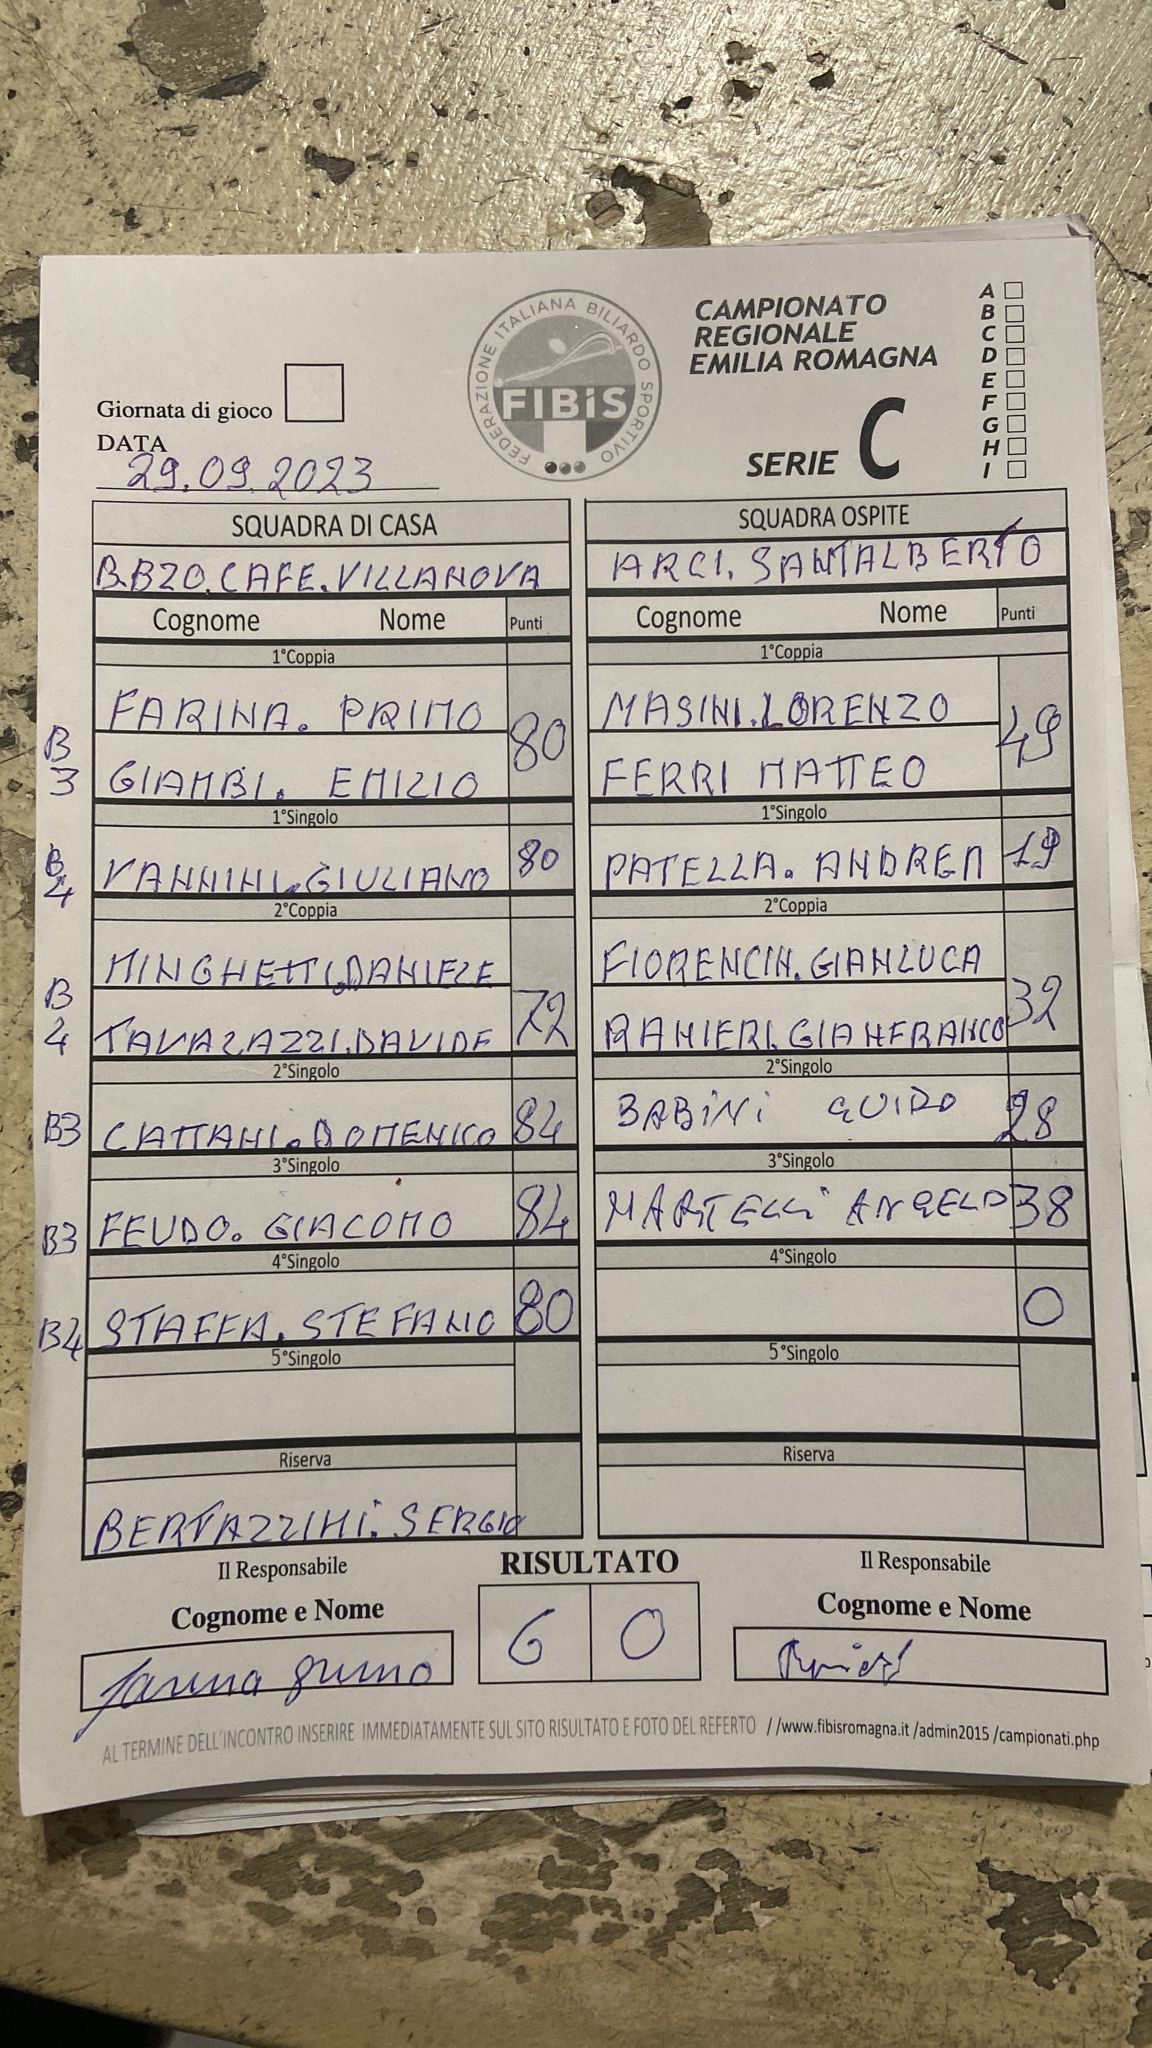 FEDERAZIONE ITALIANA BILIARDO SPORTIVO
FIBiS
CAMPIONATO
REGIONALE
EMILIA ROMAGNA
SERIE C
A
B
C
D
E
F
G
H
I
Giornata di gioco
DATA
29.09.2023
SQUADRA DI CASA
B.BZO.CAFE.VILLANOVA
Cognome Nome Punti
1°Coppia
FARINA. PRIMO
B 3
GIAMBI. EMILIO
80
1°Singolo
B 4 VANNINI.GIULIANO 80
2°Coppia
MINGHETTI.DANIELE
B 4
TAVALAZZI.DAVIDE
72
2°Singolo
B3 CATTANI.DOMENICO 84
3°Singolo
B3 FEUDO. GIACOMO 84
4°Singolo
B4 STAFFA. STEFANO 80
5°Singolo
Riserva
BERTAZZINI. SERGIO
SQUADRA OSPITE
ARCI. SANTALBERTO
Cognome Nome Punti
1°Coppia
MASINI.LORENZO
FERRI MATTEO
49
1°Singolo
PATELLA. ANDREA 19
2°Coppia
FIORENCIN.GIANLUCA
RANIERI.GIANFRANCO
32
2°Singolo
BABINI GUIDO 28
3°Singolo
MARTELLI ANGELO 38
4°Singolo
0
5°Singolo
Riserva
Il Responsabile
Cognome e Nome
Farina Primo
RISULTATO
6 0
Il Responsabile
Cognome e Nome
AL TERMINE DELL'INCONTRO INSERIRE IMMEDIATAMENTE SUL SITO RISULTATO E FOTO DEL REFERTO //www.fibisromagna.it /admin2015 /campionati.php